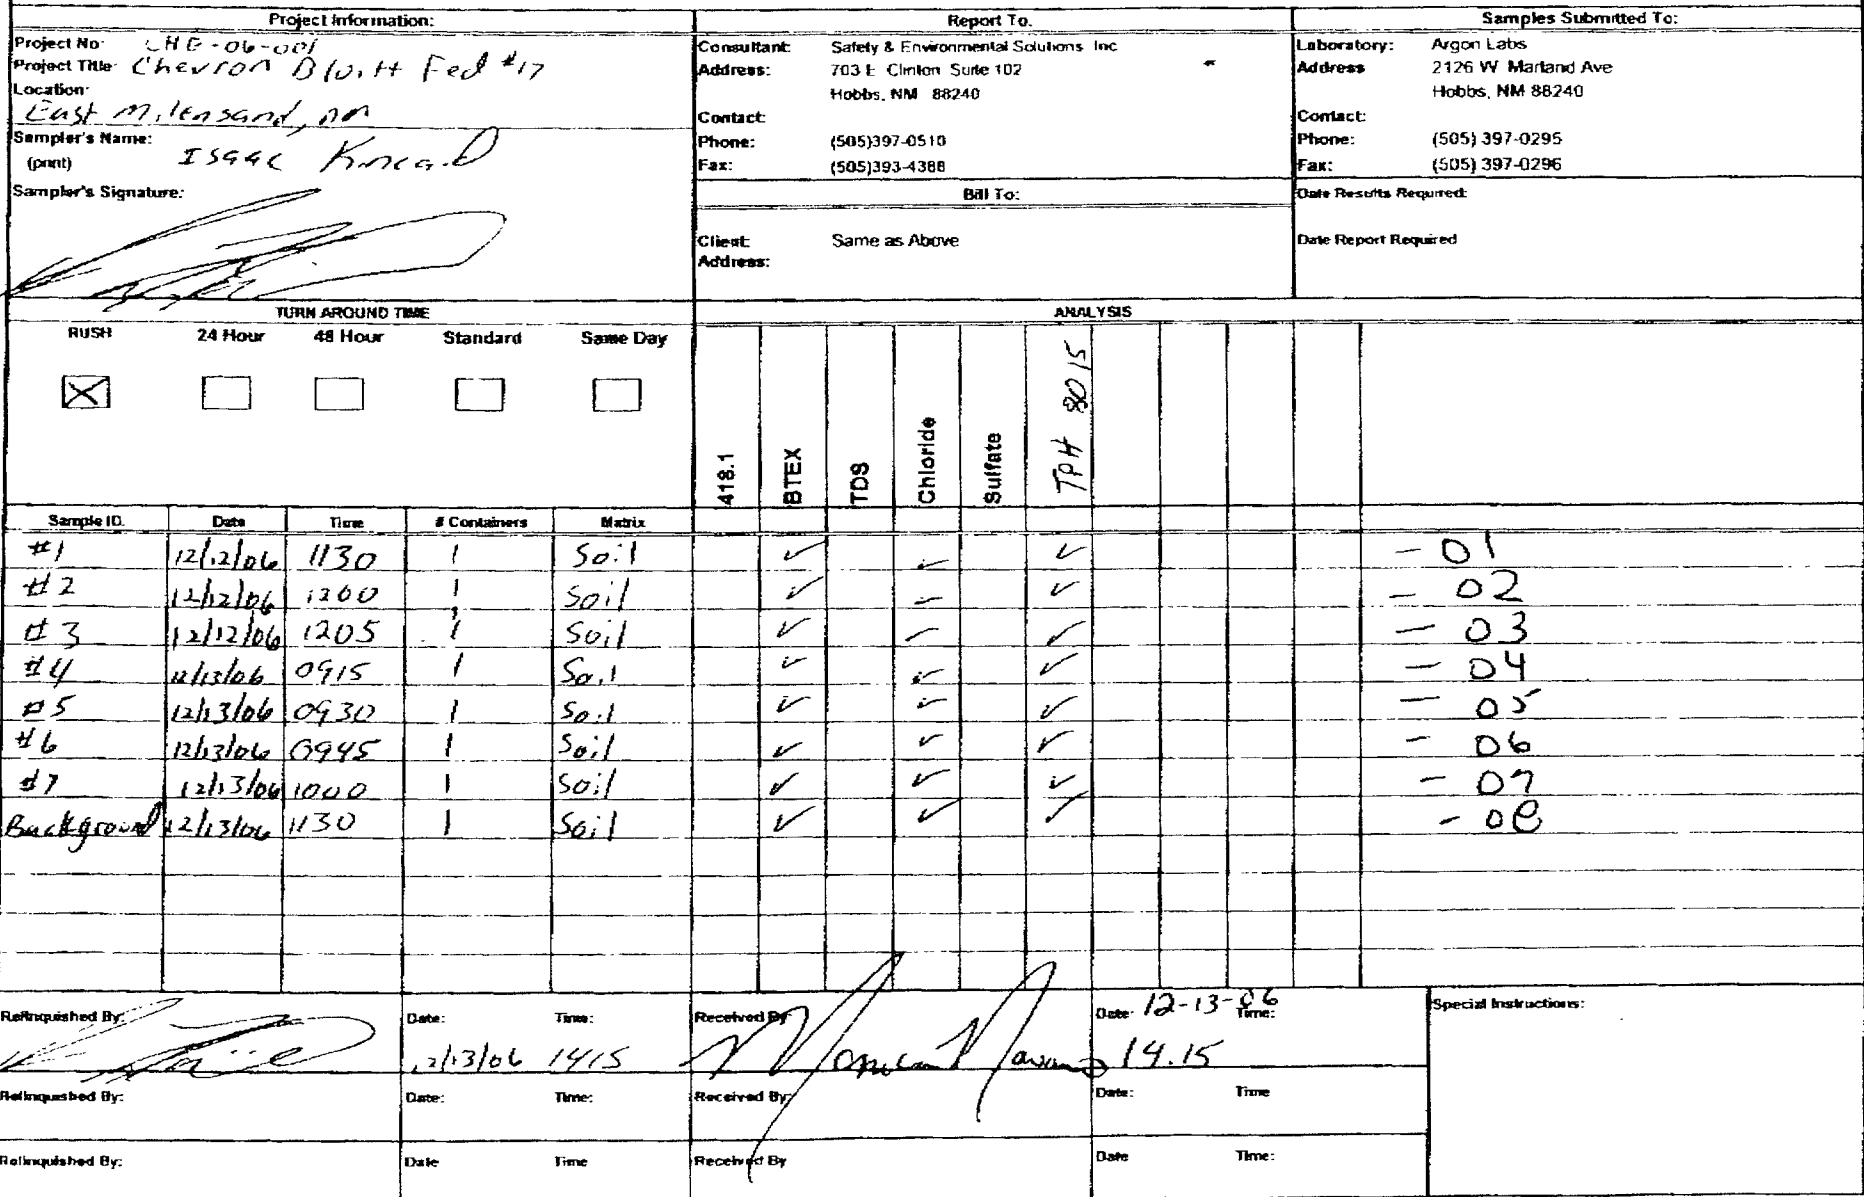 Project Information:
Project No: CHE-06-001
Project Title: Chevron Bluitt Fed #17
Location:
East Milensand, nm
Sampler's Name:
(print) Isaac Kincaid
Sampler's Signature:
Report To.
Consultant: Safety & Environmental Solutions Inc
Address: 703 E Clinton Suite 102
Hobbs, NM 88240
Contact:
Phone: (505)397-0510
Fax: (505)393-4388
Bill To:
Client: Same as Above
Address:
Samples Submitted To:
Laboratory: Argon Labs
Address 2126 W Marland Ave
Hobbs, NM 88240
Contact:
Phone: (505) 397-0295
Fax: (505) 397-0296
Date Results Required:
Date Report Required
TURN AROUND TIME
RUSH 24 Hour 48 Hour Standard Same Day
ANALYSIS
418.1 BTEX TDS Chloride Sulfate TPH 8015
Sample ID. Date Time # Containers Matrix
#1 12/12/06 1130 1 Soil ✓ ✓ ✓ - 01
#2 12/12/06 1200 1 Soil ✓ ✓ ✓ - 02
#3 12/12/06 1205 1 Soil ✓ ✓ ✓ - 03
#4 12/13/06 0915 1 Soil ✓ ✓ ✓ - 04
#5 12/13/06 0930 1 Soil ✓ ✓ ✓ - 05
#6 12/13/06 0945 1 Soil ✓ ✓ ✓ - 06
#7 12/13/06 1000 1 Soil ✓ ✓ ✓ - 07
Background 12/13/06 1130 1 Soil ✓ ✓ ✓ - 08
Relinquished By: Date: Time: Received By Date: 12-13-06 Time: Special Instructions:
12/13/06 1415 14.15
Relinquished By: Date: Time: Received By: Date: Time
Relinquished By: Date Time Received By Date Time: